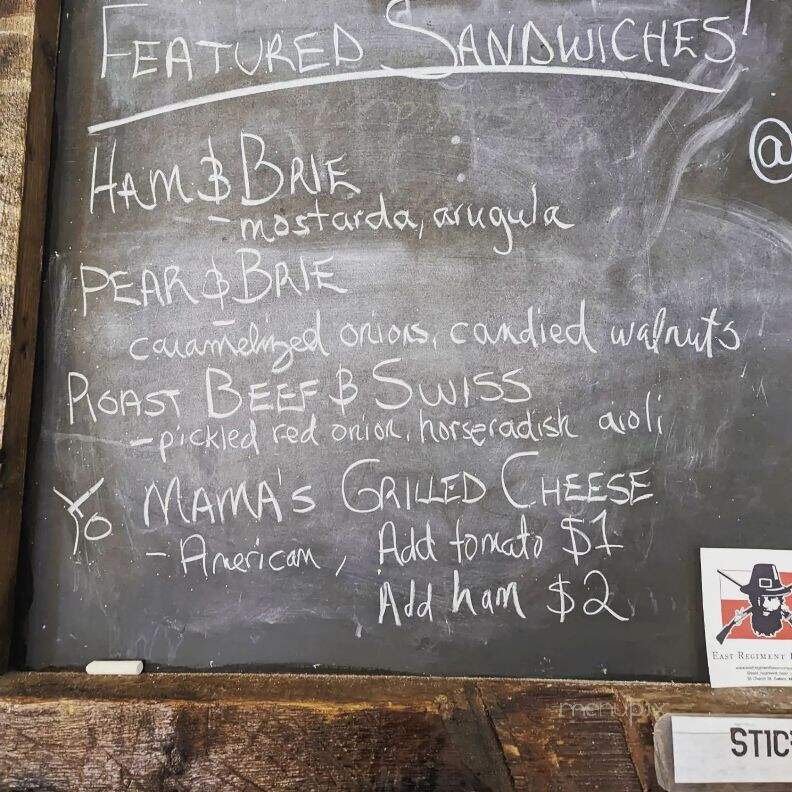 FEATURED SANDWICHES!
HAM & BRIE
- mostarda, arugula
@
PEAR & BRIE
- caramelized onions, candied walnuts
ROAST BEEF & SWISS
- pickled red onion, horseradish aioli
Yo MAMA'S GRILLED CHEESE
- American, Add tomato $1
Add ham $2
EAST REGIMENT
menupix
STIC